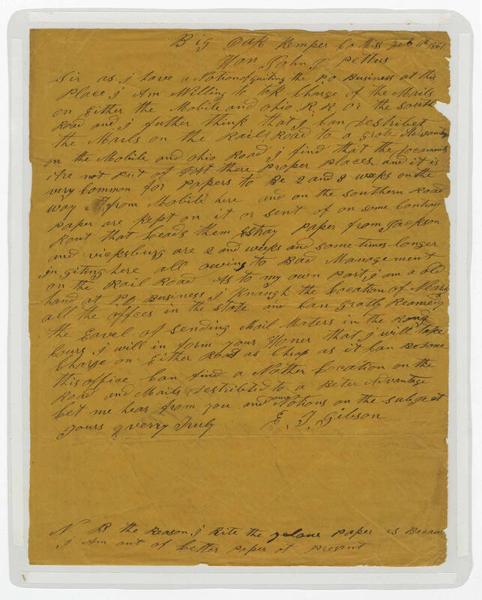 Big Oak Kemper Co Miss Feb 11th 1861
Hon John J Pettus
Sir as i have a Notion of quiting the PO Business at this
Place i Am Willing to tak Charge of the Mails
on Either the Mobile and Ohio R R or the South
Road and i futher think that i can destribet
the Mails on the Rail Road to a grate
on the Mobile and Ohio Road i find that the
are not put of At there proper places and it is
very Common for papers to Be 2 and 3 weeks on the
way from Mobile here and on the southern Road
paper are kept on it or sent of on some Contrary
Rout that leads them Astray paper from Jackson
and vicksburg are 2 and weeks and some times longer
in giting here all owing to Bad Management
on the Rail Road As to my own part i am a old
hand at PO Business i know the Location of Nearly
all the offices in the state
the Eavel of sending Mail Maters in the Rong
Cours i will in form your Honer that i will take
Charge on Either Rout as Cheap as it Can Be done
this office Can find a Nother Location on the
Road and Mails destributed to a Beter Advantage
let me hear from you and your Notions on the subject
yours verry Truly E. J. Gibson
N B the Reason i Rite the yelow paper is Becaus
i Am out of better paper at present